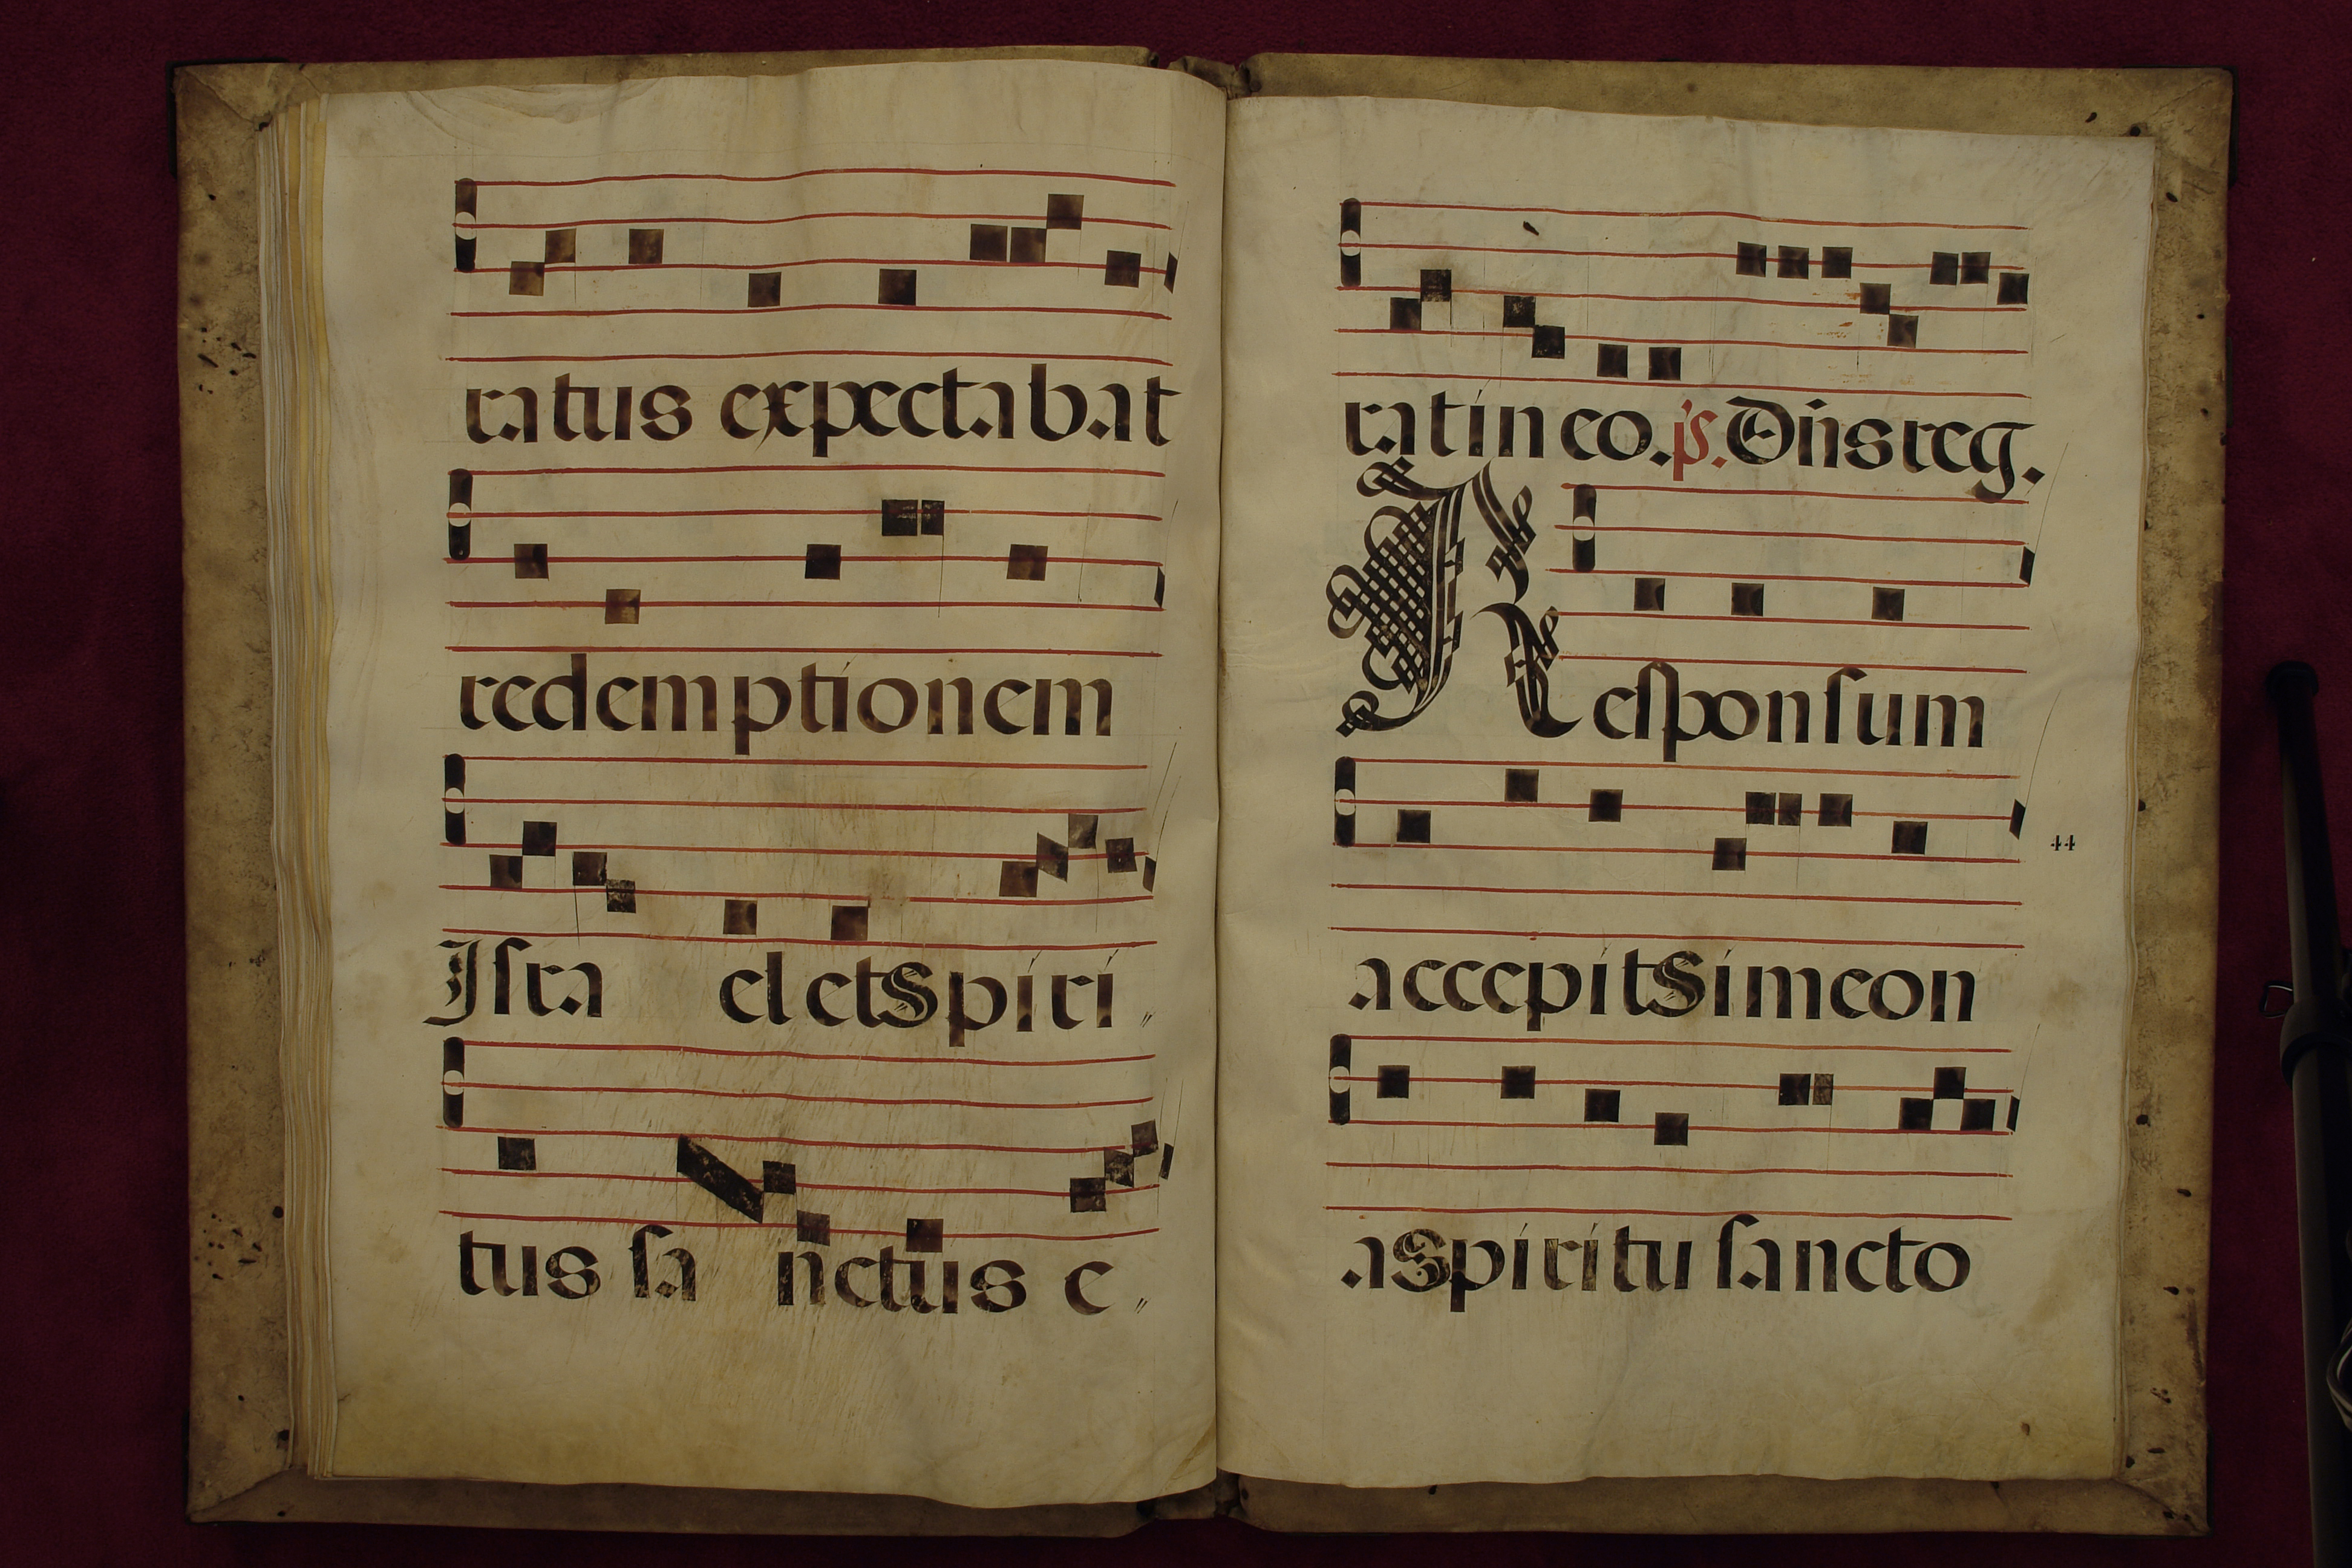 ratus expectabat
redemptionem
Isra el et Spiri〃
tus sa nctus e〃
rat in eo. ps. Dn̄s reg.
Responsum
accepit Simeon
44
a Spiritu sancto